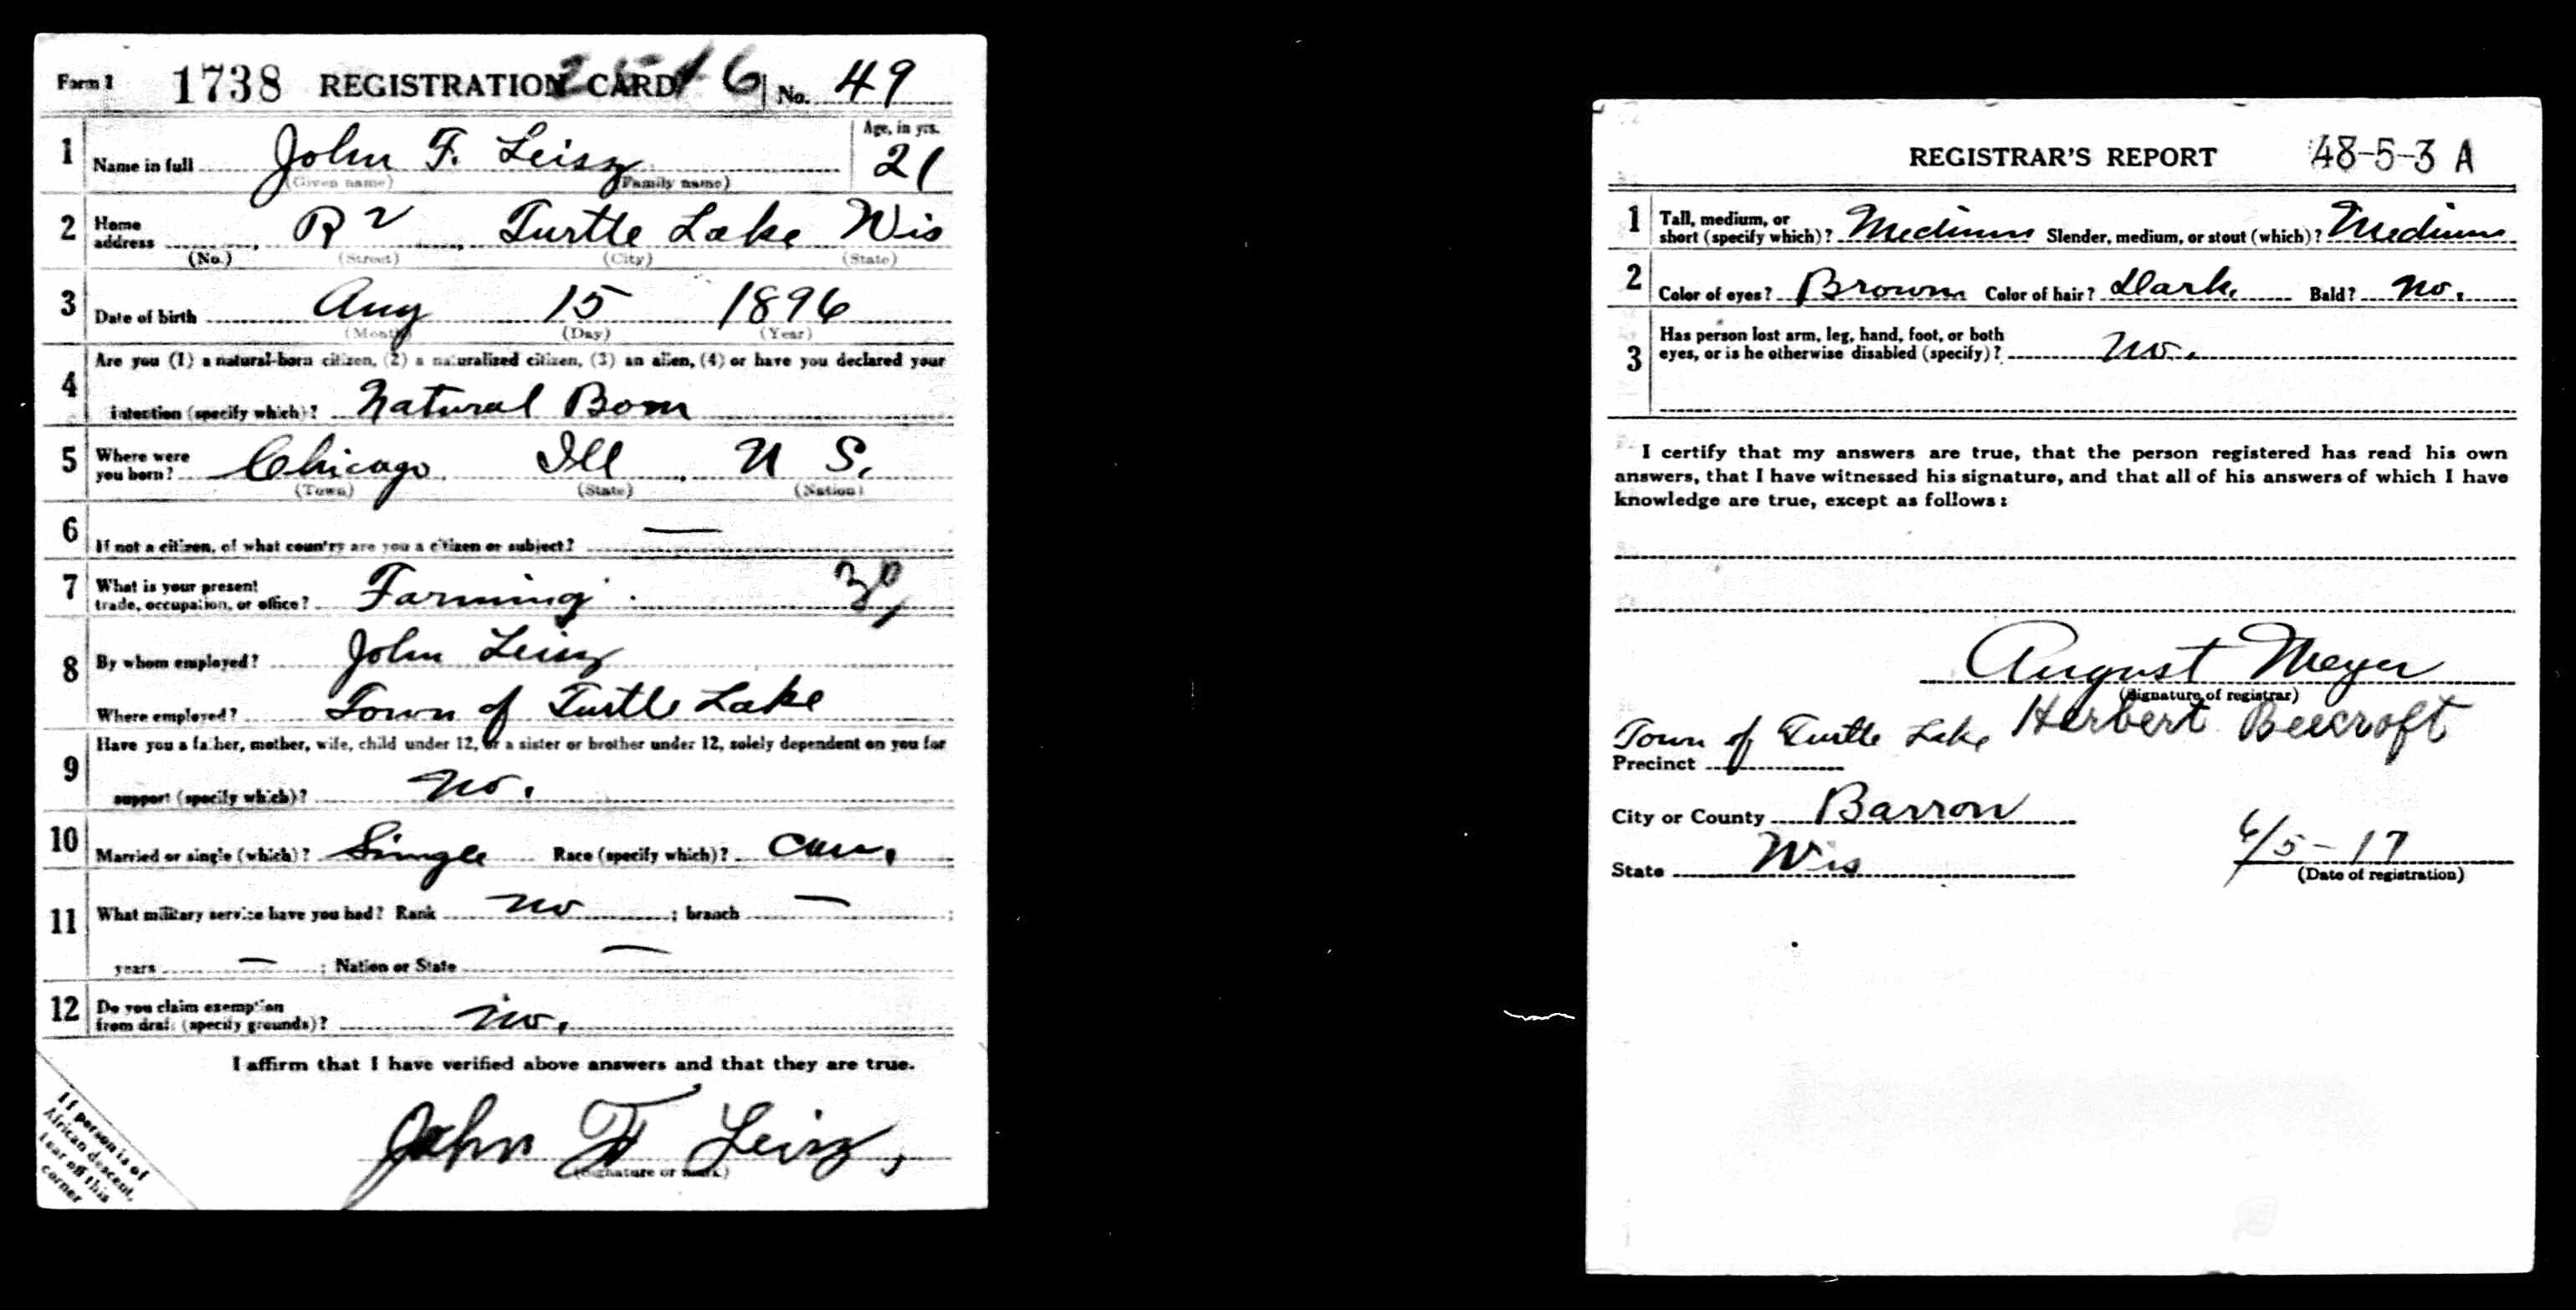 Form 1 1738 REGISTRATION CARD No. 49
1 Name in full John F. Leisz Age, in yrs. 21
(Given name) (Family name)
2 Home address R 2 Turtle Lake Wis
(No.) (Street) (City) (State)
3 Date of birth Aug 15 1896
(Month) (Day) (Year)
4 Are you (1) a natural-born citizen, (2) a naturalized citizen, (3) an alien, (4) or have you declared your
intention (specify which)? Natural Born
5 Where were you born? Chicago Ill U S.
(Town) (State) (Nation)
6 If not a citizen, of what country are you a citizen or subject? —
7 What is your present trade, occupation, or office? Farming
8 By whom employed? John Leisz
Where employed? Town of Turtle Lake
9 Have you a father, mother, wife, child under 12, or a sister or brother under 12, solely dependent on you for
support (specify which)? no.
10 Married or single (which)? Single Race (specify which)? Cau.
11 What military service have you had? Rank no ; branch — ;
years — ; Nation or State —
12 Do you claim exemption from draft (specify grounds)? no.
I affirm that I have verified above answers and that they are true.
John F Leisz,
(Signature or mark)
If person is of
African descent,
tear off this
corner
REGISTRAR'S REPORT 48-5-3 A
1 Tall, medium, or short (specify which)? Medium Slender, medium, or stout (which)? Medium
2 Color of eyes? Brown Color of hair? Dark Bald? no.
3 Has person lost arm, leg, hand, foot, or both
eyes, or is he otherwise disabled (specify)? no.
I certify that my answers are true, that the person registered has read his own
answers, that I have witnessed his signature, and that all of his answers of which I have
knowledge are true, except as follows:
August Meyer
(Signature of registrar)
Town of Turtle Lake Herbert Beecroft
Precinct
City or County Barron
State Wis 6/5-17
(Date of registration)